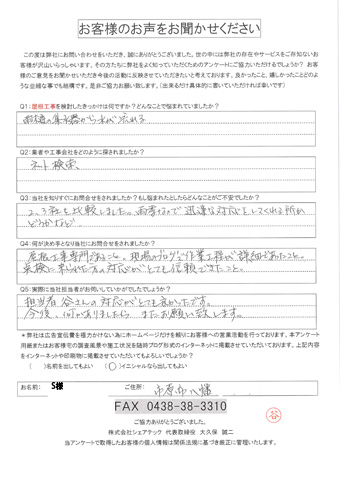 お客様のお声をお聞かせください
この度は弊社にお問い合わせをいただき、誠にありがとうございました。世の中には弊社の存在やサービスをご存知ないお
客様が沢山いらっしゃいます。その方たちに弊社をよく知っていただくためのアンケートにご協力いただけるでしょうか？お
客様のご意見をお聞かせいただき今後の活動に反映させていただきたいと考えております。良かったこと、嬉しかったことどのよ
うな些細な事でも結構です。是非ご協力お願い致します。（出来るだけ具体的に書いていただければ幸いです）
Q1：屋根工事を検討したきっかけは何ですか？どんなことで悩まれていましたか？
雨樋の集水器から水が流れる
Q2：業者や工事会社をどのように探されましたか？
ネット検索
Q3：当社を知りすぐにお問合せをされましたか？もし悩まれたとしたらどんなことがご不安でしたか？
2、3社を比較しました。雨季なので迅速な対応をしてくれる所か
どうかなど
Q4：何が決め手となり当社にお問合せをされましたか？
屋根工事専門であること。現場のブログで作業工程が詳細であったこと。
実検に来られた方の対応がとても信頼できたこと。
Q5：実際に当社担当者がお伺いしていかがでしたでしょうか？
担当者 谷さんの対応がとても良かったです。
今後、何かありましたら、またお願い致します。
＊弊社は広告宣伝費を極力かけない為にホームページだけを頼りにお客様への営業活動を行っております。本アンケート
用紙またはお客様宅の調査風景や施工状況を随時ブログ形式のインターネットに掲載させていただいております。上記内容
をインターネットや印刷物に掲載させていただいてもよろしいでしょうか？
（　）名前を出してもよい　（〇）イニシャルなら出してもよい
お名前：　S様　ご住所：　市原市八幡
FAX 0438-38-3310
ご協力ありがとうございました。
谷
株式会社シェアテック　代表取締役　大久保　誠二
当アンケートで取得したお客様の個人情報は関係法規に基づき厳正に管理いたします。